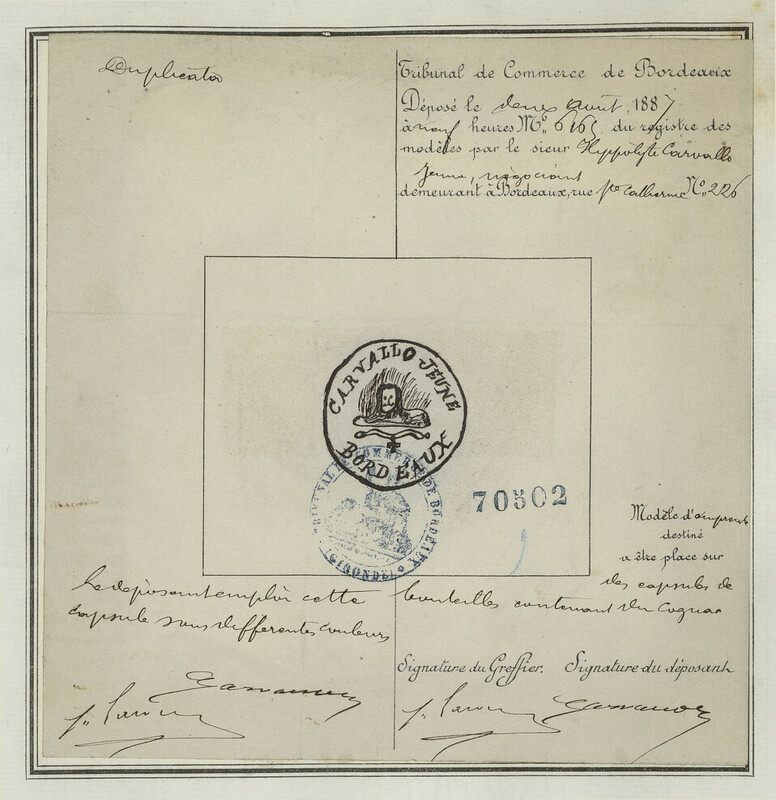 Duplicata
Tribunal de Commerce de Bordeaux
Déposé le deux août 1887
à neuf heures No. 6165 du registre des
modèles par le sieur Hippolyte Carvallo
Jeune, négociant
demeurant à Bordeaux, rue Ste Catherine No. 226
CARVALLO JEUNE
BORDEAUX
TRIBUNAL DE COMMERCE DE BORDEAUX
(GIRONDE)
70502
Modèle d'empreinte
destiné
a être place sur
des capsules de
bouteilles contenant du Cognac
le déposant emploie cette
capsule sous differentes couleurs
Signature du Greffier. Signature du déposant